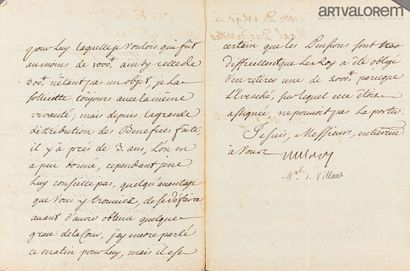 ARTVALOREM
pour luy laquelle je voulois qui fût
au moins de 1000ᵗᵗ ainsy celle de
300ᵗᵗ n'étant pas un objet, je la
sollicite toujours avec la même
vivacité; mais depuis la grande
distribution de Benefices faite,
il y'a prés de 3. ans, L'on en
a peu donné, cependant je ne
luy conseille pas, quelqu'avantage
que Vous y trouviez, de se défaire
avant d'avoir obtenu quelque
grace de la Cour, j'ay encore parlé
ce matin pour luy, mais il est
certain que les Pensions sont
difficiles que le Roy a été obligé
d'en retirer une de 2000ᵗᵗ parceque
l'Evesché, sur lequel elle étoit
assignée, ne pouvoit pas la porter.
Je suis, Messieurs, entierement
à Vous
Villars
Mᵃˡ de Villars